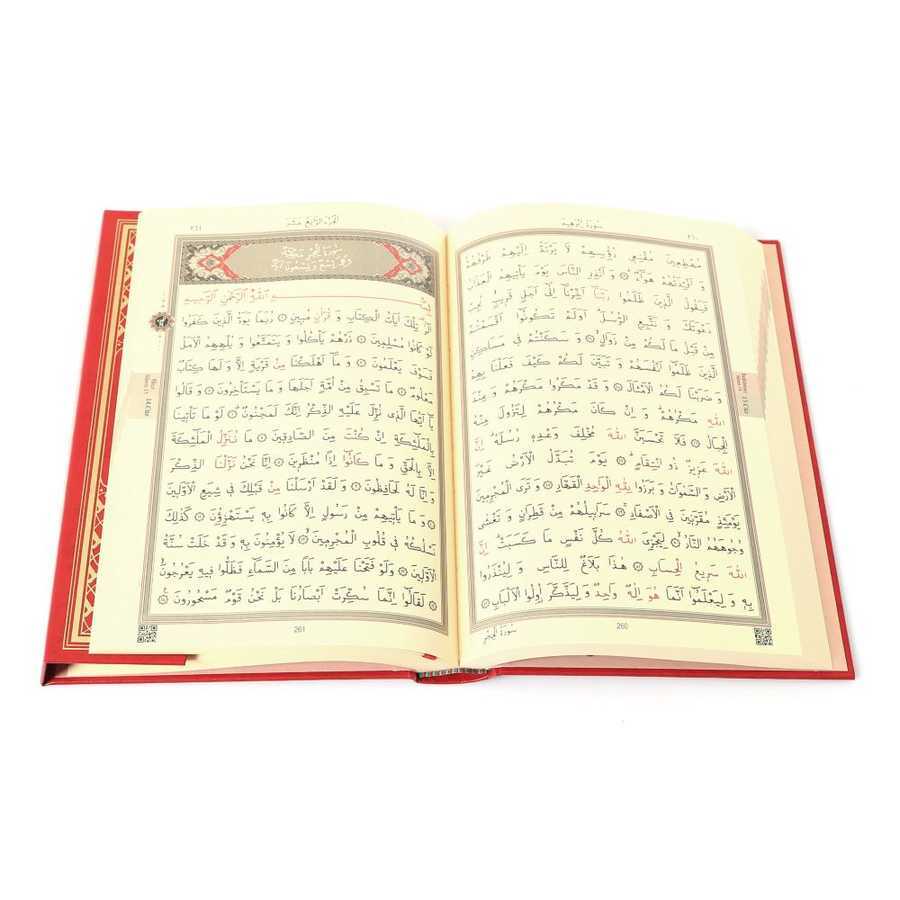 سُورَةُ اِبْرٰهِيمَ
٢٦٠
مُهْطِعِينَ مُقْنِعِي رُؤُسِهِمْ لَا يَرْتَدُّ اِلَيْهِمْ طَرْفُهُمْ
وَ اَفْئِدَتُهُمْ هَوَاءٌ ۞ وَ اَنْذِرِ النَّاسَ يَوْمَ يَأْتِيهِمُ الْعَذَابُ
فَيَقُولُ الَّذِينَ ظَلَمُوا رَبَّنَا اَخِّرْنَا اِلٰى اَجَلٍ قَرِيبٍ نُجِبْ
دَعْوَتَكَ وَ نَتَّبِعِ الرُّسُلَ اَوَلَمْ تَكُونُوا اَقْسَمْتُمْ
مِنْ قَبْلُ مَا لَكُمْ مِنْ زَوَالٍ ۞ وَ سَكَنْتُمْ فِي مَسَاكِنِ
الَّذِينَ ظَلَمُوا اَنْفُسَهُمْ وَ تَبَيَّنَ لَكُمْ كَيْفَ فَعَلْنَا بِهِمْ
وَ ضَرَبْنَا لَكُمُ الْاَمْثَالَ ۞ وَ قَدْ مَكَرُوا مَكْرَهُمْ وَ عِنْدَ
اللّٰهِ مَكْرُهُمْ وَ اِنْ كَانَ مَكْرُهُمْ لِتَزُولَ مِنْهُ
الْجِبَالُ ۞ فَلَا تَحْسَبَنَّ اللّٰهَ مُخْلِفَ وَعْدِهِ رُسُلَهُ اِنَّ
اللّٰهَ عَزِيزٌ ذُو انْتِقَامٍ ۞ يَوْمَ تُبَدَّلُ الْاَرْضُ غَيْرَ
الْاَرْضِ وَ السَّمٰوَاتُ وَ بَرَزُوا لِلّٰهِ الْوَاحِدِ الْقَهَّارِ ۞ وَ تَرَى الْمُجْرِمِينَ
يَوْمَئِذٍ مُقَرَّنِينَ فِي الْاَصْفَادِ ۞ سَرَابِيلُهُمْ مِنْ قَطِرَانٍ وَ تَغْشٰى
وُجُوهَهُمُ النَّارُ ۞ لِيَجْزِيَ اللّٰهُ كُلَّ نَفْسٍ مَا كَسَبَتْ اِنَّ
اللّٰهَ سَرِيعُ الْحِسَابِ ۞ هٰذَا بَلَاغٌ لِلنَّاسِ وَ لِيُنْذَرُوا
بِهِ وَ لِيَعْلَمُوا اَنَّمَا هُوَ اِلٰهٌ وَاحِدٌ وَ لِيَذَّكَّرَ اُولُوا الْاَلْبَابِ ۞
260
سُورَةُ الْحِجْرِ
الْجُزْءُ الرَّابِعُ عَشَرَ
٢٦١
بِسْمِ اللّٰهِ الرَّحْمٰنِ الرَّحِيمِ
الٓرٰ تِلْكَ اٰيَاتُ الْكِتَابِ وَ قُرْاٰنٍ مُبِينٍ ۞ رُبَمَا يَوَدُّ الَّذِينَ كَفَرُوا
لَوْ كَانُوا مُسْلِمِينَ ۞ ذَرْهُمْ يَأْكُلُوا وَ يَتَمَتَّعُوا وَ يُلْهِهِمُ الْاَمَلُ
فَسَوْفَ يَعْلَمُونَ ۞ وَ مَا اَهْلَكْنَا مِنْ قَرْيَةٍ اِلَّا وَ لَهَا كِتَابٌ
مَعْلُومٌ ۞ مَا تَسْبِقُ مِنْ اُمَّةٍ اَجَلَهَا وَ مَا يَسْتَأْخِرُونَ ۞ وَ قَالُوا
يَا اَيُّهَا الَّذِي نُزِّلَ عَلَيْهِ الذِّكْرُ اِنَّكَ لَمَجْنُونٌ ۞ لَوْ مَا تَأْتِينَا
بِالْمَلٰئِكَةِ اِنْ كُنْتَ مِنَ الصَّادِقِينَ ۞ مَا نُنَزِّلُ الْمَلٰئِكَةَ
اِلَّا بِالْحَقِّ وَ مَا كَانُوا اِذًا مُنْظَرِينَ ۞ اِنَّا نَحْنُ نَزَّلْنَا الذِّكْرَ
وَ اِنَّا لَهُ لَحَافِظُونَ ۞ وَ لَقَدْ اَرْسَلْنَا مِنْ قَبْلِكَ فِي شِيَعِ الْاَوَّلِينَ
۞ وَ مَا يَأْتِيهِمْ مِنْ رَسُولٍ اِلَّا كَانُوا بِهِ يَسْتَهْزِؤُنَ ۞ كَذٰلِكَ
نَسْلُكُهُ فِي قُلُوبِ الْمُجْرِمِينَ ۞ لَا يُؤْمِنُونَ بِهِ وَ قَدْ خَلَتْ سُنَّةُ
الْاَوَّلِينَ ۞ وَلَوْ فَتَحْنَا عَلَيْهِمْ بَابًا مِنَ السَّمَاءِ فَظَلُّوا فِيهِ يَعْرُجُونَ
۞ لَقَالُوا اِنَّمَا سُكِّرَتْ اَبْصَارُنَا بَلْ نَحْنُ قَوْمٌ مَسْحُورُونَ ۞
261